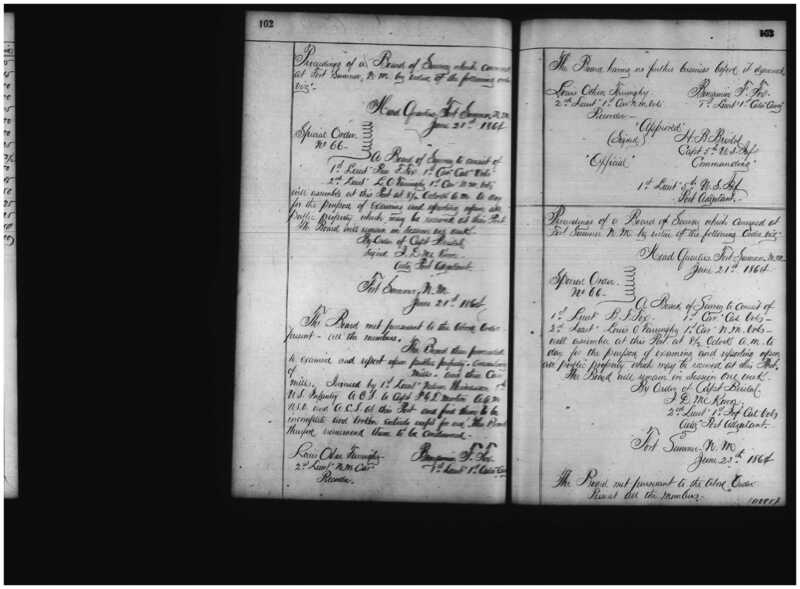 102
Proceedings of a Board of Survey which convened
at Fort Sumner, N.M. by virtue of the following order
viz:
Head Quarters Fort Sumner N.M.
June 21st 1864
Special Order
No 66
A Board of Survey to consist of
1st Lieut Ben F. Fox 1st Cav. Cal. Vols
2nd Lieut L. O. 1st Cav N.M. Vols
will assemble at this Post at 8½ Oclock a.m. to day
for the purpose of examining and reporting upon all
public property which may be received at this Post
The Board will remain in session one week.
By Order of Capt Bristol
Signed J. D. Mc
Actg Post Adjutant.
Fort Sumner N.M.
June 21st 1864
The Board met pursuant to the above order
present all the members.
The Board then proceeded
to examine and report upon public property
of mills and three
mills. by 1st Lieut
U.S. Infantry A.C.S. to Capt P. & L.
A.S.O. and A.C.S. at this Post and find them to be
incomplete and broken unfit for use. The Board
therefore recommend them to be condemned.
Louis Othon
2nd Lieut N.M. Cav
Recorder
Benjamin F. Fox
1st Lieut 1st Cav
103
The Board having no further business before it adjourned
Louis Othon
2nd Lieut 1st Cav N.M. Vols
Recorder
Benjamin F. Fox
1st Lieut 1st Cav
"Approved"
(Signed) H. B. Bristol
Capt 5th U.S. Inf
"Official" Commanding
1st Lieut 5th U.S. Inf
Post Adjutant.
Proceedings of a Board of Survey which convened at
Fort Sumner N.M. by virtue of the following Order viz
Head Quarters Fort Sumner N.M.
June 21st 1864
Special Order
No 66
A Board of Survey to consist of
1st Lieut B. F. Fox 1st Cav Cal Vols
2nd Lieut Louis O 1st Cav N.M. Vols
will assemble at this Post at 8½ Oclock a.m. to
day for the purpose of examining and reporting upon
all public property which may be received at this Post.
The Board will remain in session one week.
By Order of Capt Bristol
J. D. Mc
2nd Lieut 1st Inf Cal Vols
Actg Post Adjutant.
Fort Sumner N.M.
June 23rd 1864
The Board met pursuant to the above Order
Present all the members.